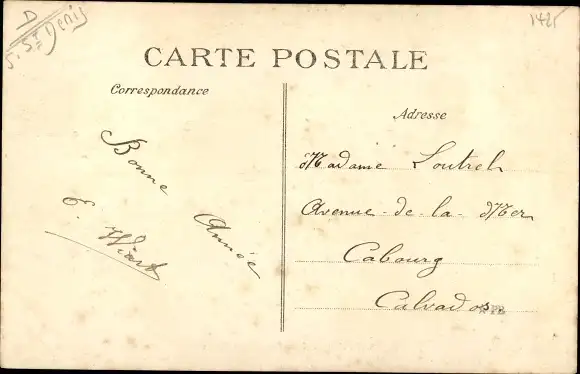 D
S. St Denis
1425
CARTE POSTALE
Correspondance
Adresse
Bonne Année
E. Wiart
Madame Loutrel
Avenue-de-la-Mer
Cabourg
Calvados